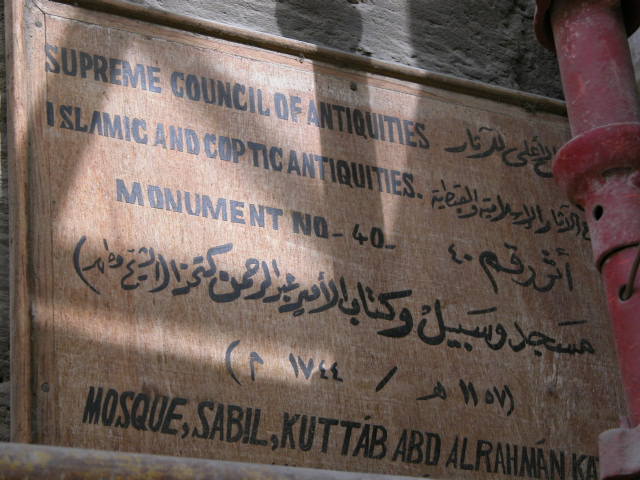 SUPREME COUNCIL OF ANTIQUITIES
الأعلى للآثار
ISLAMIC AND COPTIC ANTIQUITIES.
الآثار الإسلامية والقبطية
MONUMENT NO - 40 -
أثر رقم ٤٠
مسجد وسبيل وكتاب الأمير عبد الرحمن كتخدا (الشيخ مطهر)
(١١٥٧ هـ / ١٧٤٤ م)
MOSQUE, SABIL, KUTTÁB ABD ALRAHMÁN KA